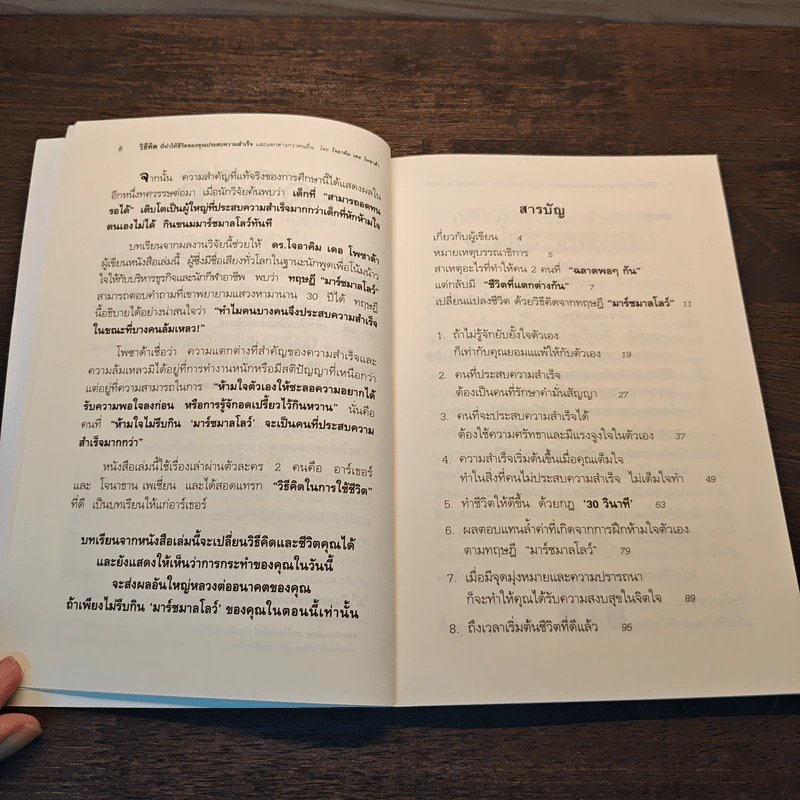 8 วิธีคิด ที่ทำให้ชีวิตของคุณประสบความสำเร็จ และแตกต่างกว่าคนอื่น โดย โจอาคิม เดอ โพซาด้า
จากนั้น ความสำคัญที่แท้จริงของการศึกษานี้ได้แสดงผลใน
อีกหนึ่งทศวรรษต่อมา เมื่อนักวิจัยค้นพบว่า เด็กที่ “สามารถอดทน
รอได้” เติบโตเป็นผู้ใหญ่ที่ประสบความสำเร็จมากกว่าเด็กที่หักห้ามใจ
ตนเองไม่ได้ กินขนมมาร์ชมาลโลว์ทันที
บทเรียนจากผลงานวิจัยนี้ช่วยให้ ดร.โจอาคิม เดอ โพซาด้า
ผู้เขียนหนังสือเล่มนี้ ผู้ซึ่งมีชื่อเสียงทั่วโลกในฐานะนักพูดเพื่อโน้มน้าว
ใจให้กับบริหารธุรกิจและนักกีฬาอาชีพ พบว่า ทฤษฎี “มาร์ชมาลโลว์”
สามารถตอบคำถามที่เขาพยายามแสวงหามานาน 30 ปีได้ ทฤษฎี
นี้อธิบายได้อย่างน่าสนใจว่า “ทำไมคนบางคนจึงประสบความสำเร็จ
ในขณะที่บางคนล้มเหลว!”
โพซาด้าเชื่อว่า ความแตกต่างที่สำคัญของความสำเร็จและ
ความล้มเหลวมิได้อยู่ที่การทำงานหนักหรือมีสติปัญญาที่เหนือกว่า
แต่อยู่ที่ความสามารถในการ “ห้ามใจตัวเองให้ชะลอความอยากได้
รับความพอใจลงก่อน หรือการรู้จักอดเปรี้ยวไว้กินหวาน” นั่นคือ
คนที่ “ห้ามใจไม่รีบกิน ‘มาร์ชมาลโลว์’ จะเป็นคนที่ประสบความ
สำเร็จมากกว่า”
หนังสือเล่มนี้ใช้เรื่องเล่าผ่านตัวละคร 2 คนคือ อาร์เธอร์
และ โจนาธาน เพเชี่ยน และได้สอดแทรก “วิธีคิดในการใช้ชีวิต”
ที่ดี เป็นบทเรียนให้แก่อาร์เธอร์
บทเรียนจากหนังสือเล่มนี้จะเปลี่ยนวิธีคิดและชีวิตคุณได้
และยังแสดงให้เห็นว่าการกระทำของคุณในวันนี้
จะส่งผลอันใหญ่หลวงต่ออนาคตของคุณ
ถ้าเพียงไม่รีบกิน ‘มาร์ชมาลโลว์’ ของคุณในตอนนี้เท่านั้น
สารบัญ
เกี่ยวกับผู้เขียน 4
หมายเหตุบรรณาธิการ 5
สาเหตุอะไรที่ทำให้คน 2 คนที่ “ฉลาดพอๆ กัน”
แต่กลับมี “ชีวิตที่แตกต่างกัน” 7
เปลี่ยนแปลงชีวิต ด้วยวิธีคิดจากทฤษฎี “มาร์ชมาลโลว์” 11
1. ถ้าไม่รู้จักยับยั้งใจตัวเอง
ก็เท่ากับคุณยอมแพ้ให้กับตัวเอง 19
2. คนที่ประสบความสำเร็จ
ต้องเป็นคนที่รักษาคำมั่นสัญญา 27
3. คนที่จะประสบความสำเร็จได้
ต้องใช้ความศรัทธาและมีแรงจูงใจในตัวเอง 37
4. ความสำเร็จเริ่มต้นขึ้นเมื่อคุณเต็มใจ
ทำในสิ่งที่คนไม่ประสบความสำเร็จ ไม่เต็มใจทำ 49
5. ทำชีวิตให้ดีขึ้น ด้วยกฎ ‘30 วินาที’ 63
6. ผลตอบแทนล้ำค่าที่เกิดจากการฝึกห้ามใจตัวเอง
ตามทฤษฎี “มาร์ชมาลโลว์” 79
7. เมื่อมีจุดมุ่งหมายและความปรารถนา
ก็จะทำให้คุณได้รับความสงบสุขในจิตใจ 89
8. ถึงเวลาเริ่มต้นชีวิตที่ดีแล้ว 95